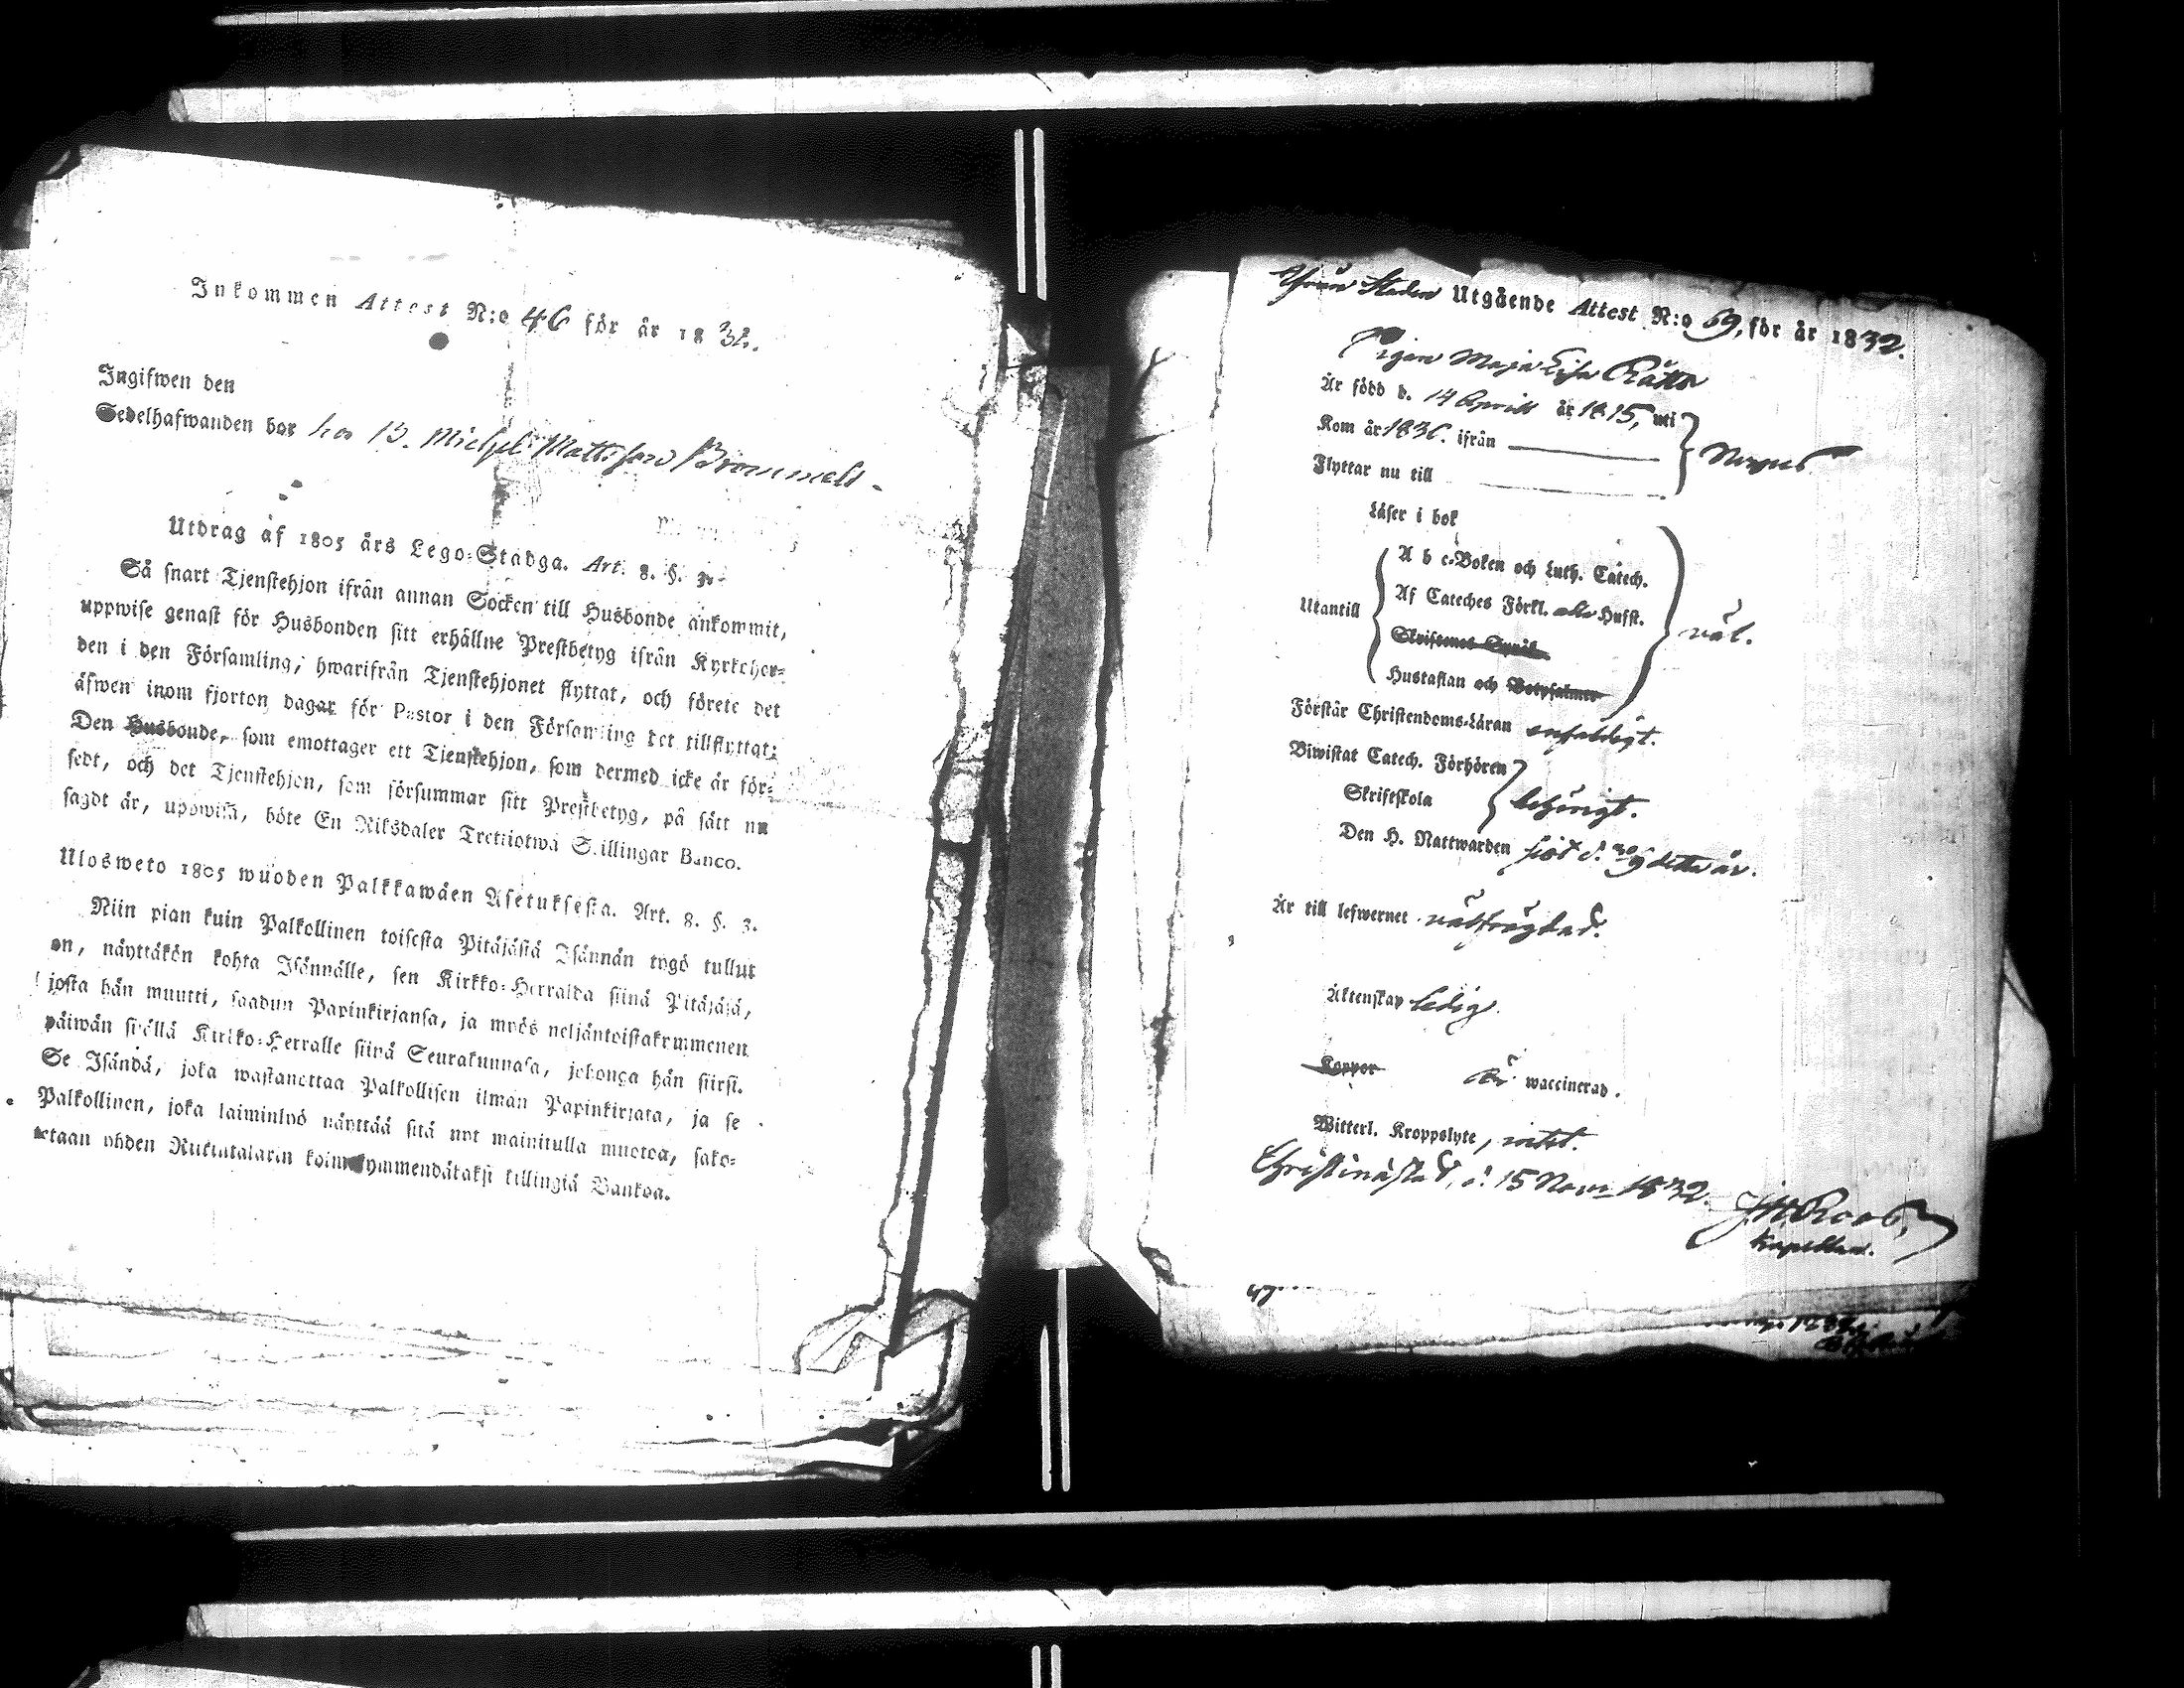 Inkommen Attest N:o 46 för år 1832.
Ingifwen den
Sedelhafwanden bor hos B. Michel Mattsson Brommels
Utdrag af 1805 års Lego-Stadga. Art. 8. §. 3.
Så snart Tjenstehjon ifrån annan Socken till Husbonde ankommit,
uppwise genast för Husbonden sitt erhållne Prestbetyg ifrån Kyrkoher-
den i den Församling, hwarifrån Tjenstehjonet flyttat, och förete det
äfwen inom fjorton dagar för Pastor i den Församling det tillflyttat;
Den Husbonde, som emottager ett Tjenstehjon, som dermed icke är för-
sedt, och det Tjenstehjon, som försummar sitt Prestbetyg, på sätt nu
sagdt är, uppwisa, böte En Riksdaler Trettiotwå Skillingar Banco.
Ulosweto 1805 wuoden Palkkawäen Asetuksesta. Art. 8. §. 3.
Niin pian kuin Palkollinen toisesta Pitäjästä Isännän tygö tullut
on, näyttäkön kohta Isännälle, sen Kirkko-Herralda siinä Pitäjäsä,
josta hän muutti, saadun Papinkirjansa, ja myös neljäntoistakymmenen
päiwän sisällä Kirkko-Herralle siinä Seurakunnasa, johonga hän siirsi.
Se Isändä, joka wastanottaa Palkollisen ilman Papinkirjata, ja se
Palkollinen, joka laiminlyö näyttää sitä nyt mainitulla muotoa, sako-
tetaan yhden Riikintalarin kolmekymmendätaksi killingiä Bankoa.
Ifrån Staden Utgående Attest N:o 69, för år 1832.
Pigan Maja Lisa Rätto
Är född d. 14 Aprill år 1815, uti
Kom år 183 ifrån
Flyttar nu till
Läser i bok
A b c-Boken och Luth. Catech.
Utantill
Af Cateches Förkl. Husst.
Skriftenes Språk
väl.
Hustaflan och Botpsalmer
Förstår Christendoms-Läran enfaldigt.
Biwistat Catech. Förhören
Skriftskola
behörigt.
Den H. Nattwarden sist d. 30/9 detta år.
Är till lefwernet välfrägdad.
Äktenskap ledig.
Koppor är waccinerad.
Witterl. Kroppslyte, intet.
Christinæstad, d. 15 Novr 1832.
Kapellan.
47